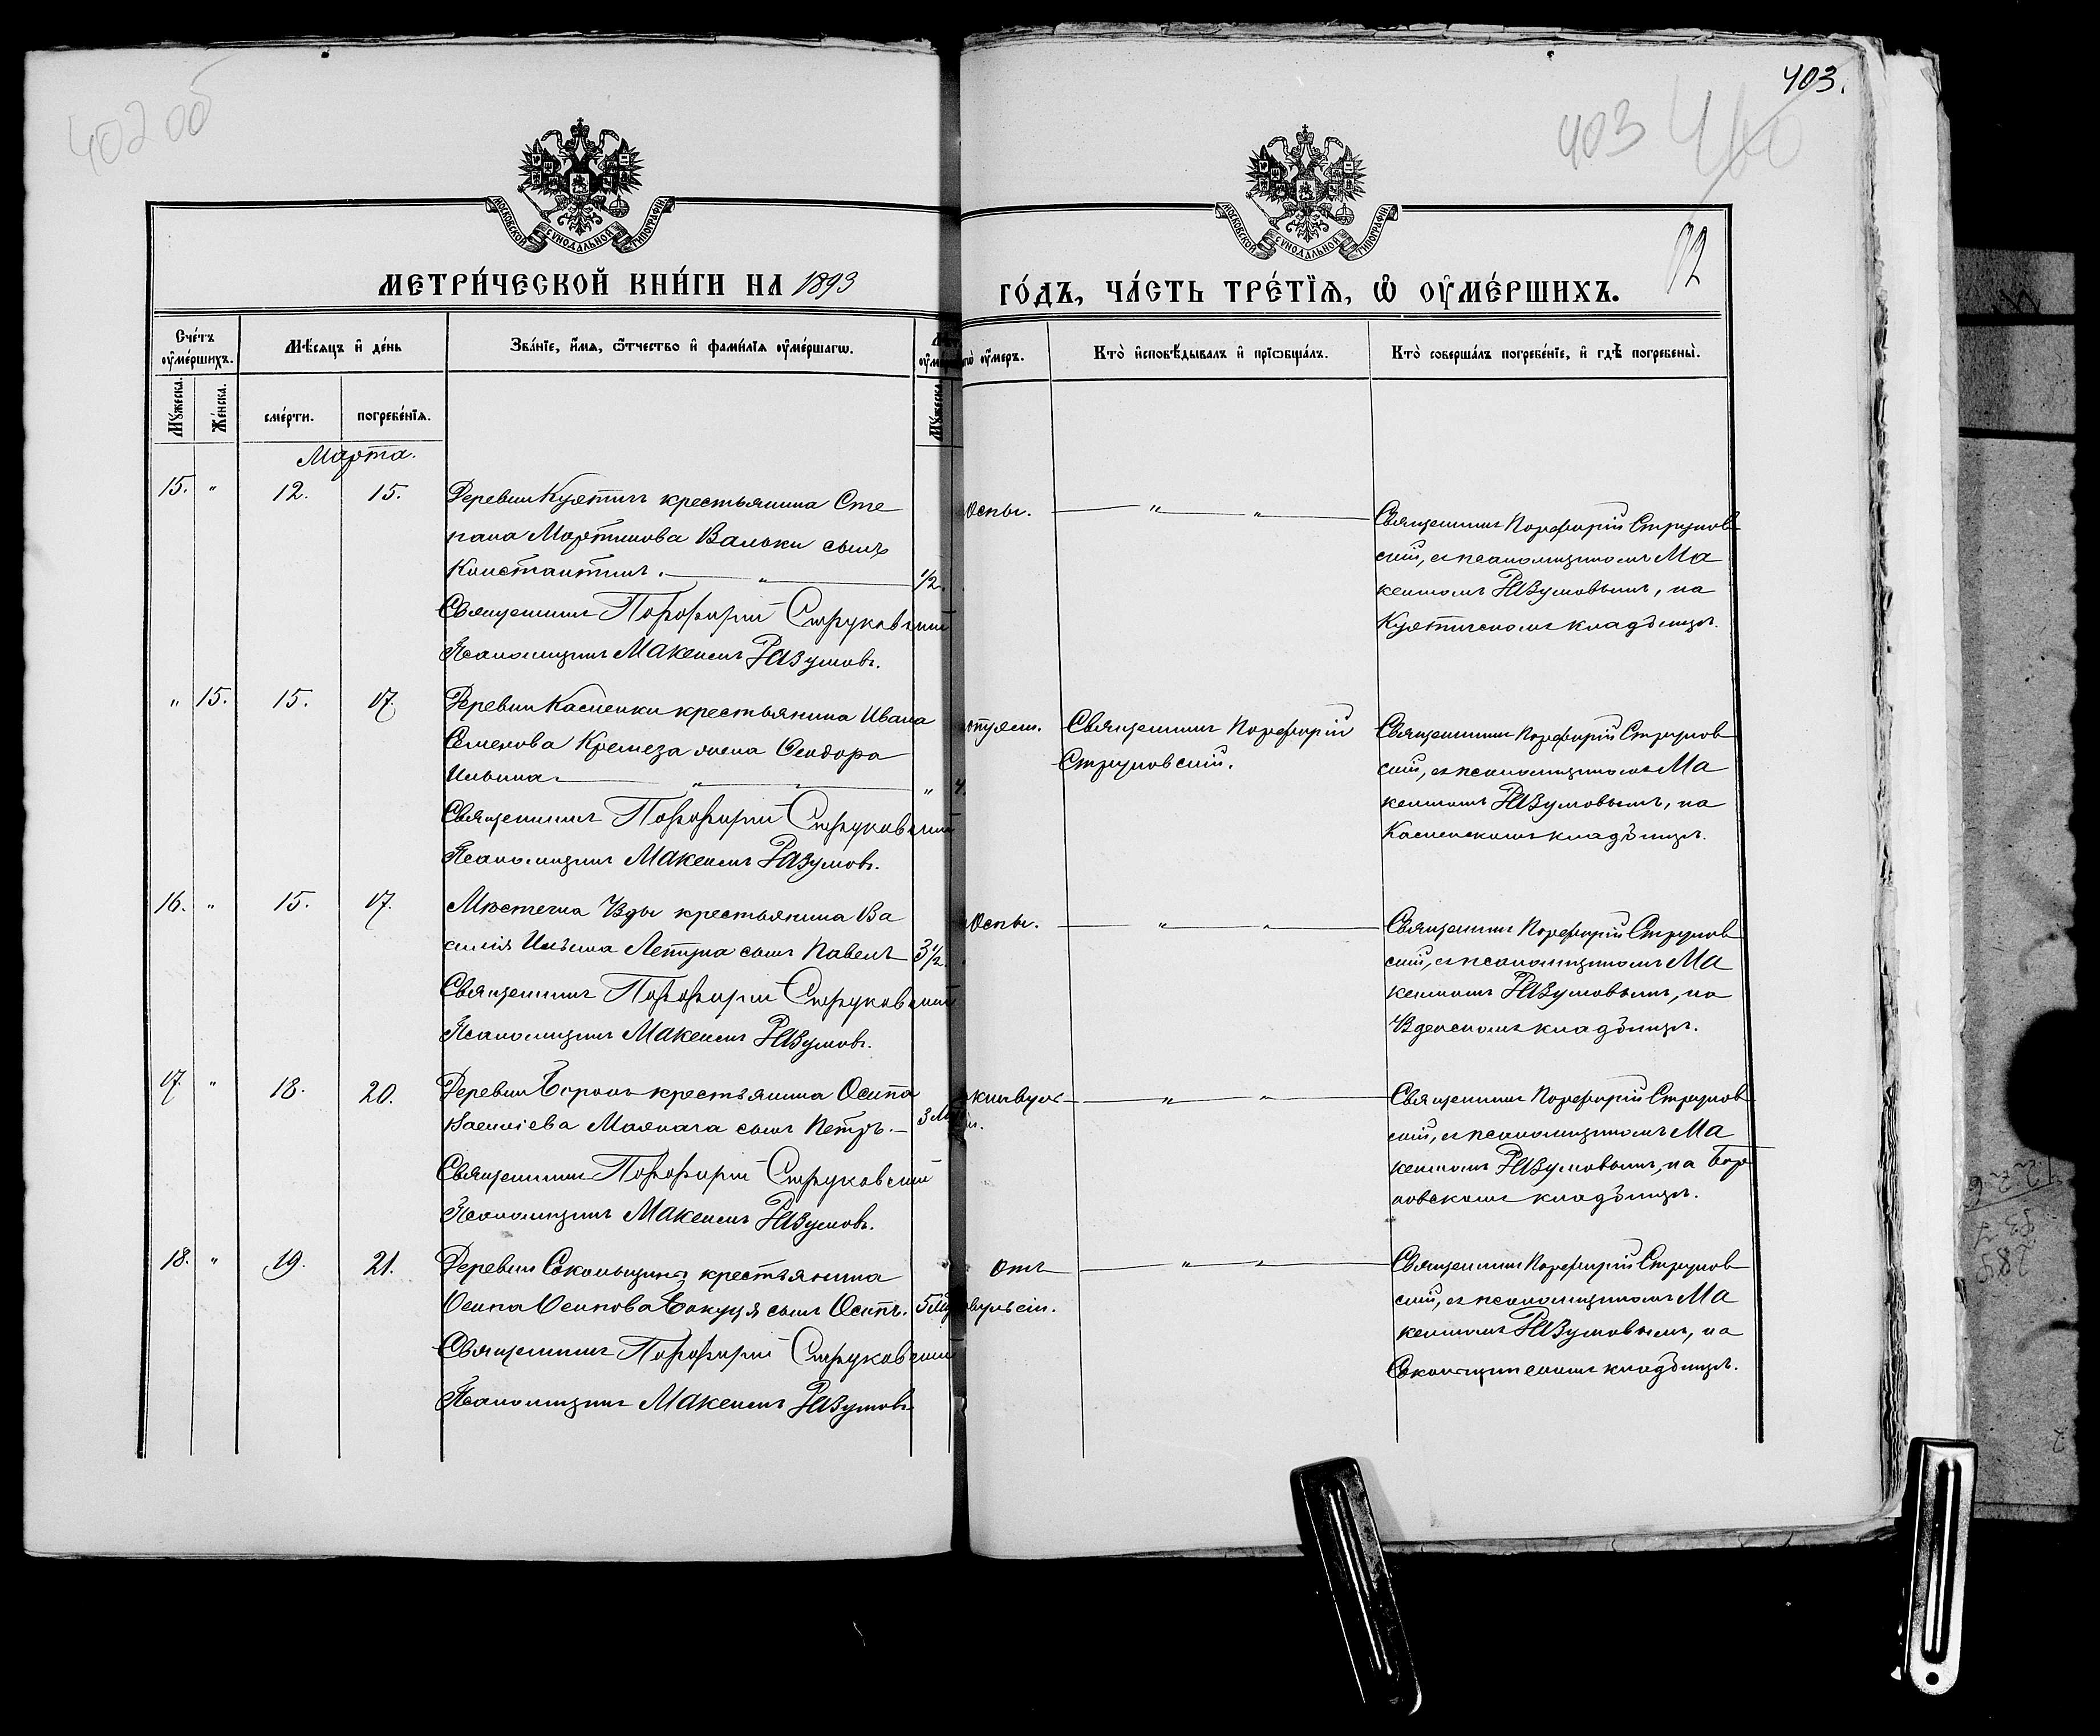 402 об
403.
403
МОСКОВСКОЙ СѴНОДАЛЬНОЙ ТИПОГРАФІИ
МОСКОВСКОЙ СѴНОДАЛЬНОЙ ТИПОГРАФІИ
МЕТРИ́ЧЕСКОЙ КНИ́ГИ НА 1893
ГО́ДЪ, ЧА́СТЬ ТРЕ́ТІѦ, Ѡ ОУ҆МЕ́РШИХЪ.
Сче́тъ оу҆ме́ршихъ.
Мѣ́сяцъ и҆ де́нь
Зва́нїе, и҆́мя, ѻ҆́тчество и҆ фами́лїя оу҆ме́ршагѡ.
оу҆́меръ.
Кто̀ и҆сповѣ́дывалъ и҆ прїѡбща́лъ.
Кто̀ соверша́лъ погребе́нїе, и҆ гдѣ̀ погребены̀.
Мꙋ́жеска.
Же́нска.
сме́рти.
погребе́нїя.
Мꙋ́жеска.
Марта.
15. " 12. 15.
Деревни Куятичъ крестьянина Сте
пана Мартинова Вальки сынъ
Константинъ. — " — 1/2.
Священникъ Порфирій Струковскій
Псаломщикъ Максимъ Разумовъ.
Оспы.
— " — " —
Священникъ Порфирій Струков
скій, съ псаломщикомъ Ма
ксимомъ Разумовымъ, на
Куятичскомъ кладбищѣ.
" 15. 15. 17.
Деревни Касценки крестьянина Ивана
Семенова Кремеза жена Ѳеодора
Ильина — " — " — "
Священникъ Порфирій Струковскій
Псаломщикъ Максимъ Разумовъ.
Священникъ Порфирій
Струковскій.
Священникъ Порфирій Струков
скій, съ псаломщикомъ Ма
ксимомъ Разумовымъ, на
кладбищѣ.
16. " 15. 17.
Мѣстечка Узды крестьянина Ва
силія Ильина Лепуна сынъ Павелъ — 3 1/2.
Священникъ Порфирій Струковскій
Псаломщикъ Максимъ Разумовъ.
Оспы.
— " — " —
Священникъ Порфирій Струков
скій, съ псаломщикомъ Ма
ксимомъ Разумовымъ, на
Узденскомъ кладбищѣ.
17. " 18. 20.
Деревни крестьянина Осипа
Василіева сынъ Петръ. — 3
Священникъ Порфирій Струковскій
Псаломщикъ Максимъ Разумовъ.
— " — " —
Священникъ Порфирій Струков
скій, съ псаломщикомъ Ма
ксимомъ Разумовымъ, на
кладбищѣ.
18. " 19. 21.
Деревни Сокольщины крестьянина
Осипа Осипова сынъ Осипъ. 5
Священникъ Порфирій Струковскій
Псаломщикъ Максимъ Разумовъ
отъ
— " — " —
Священникъ Порфирій Струков
скій, съ псаломщикомъ Ма
ксимомъ Разумовымъ, на
кладбищѣ.